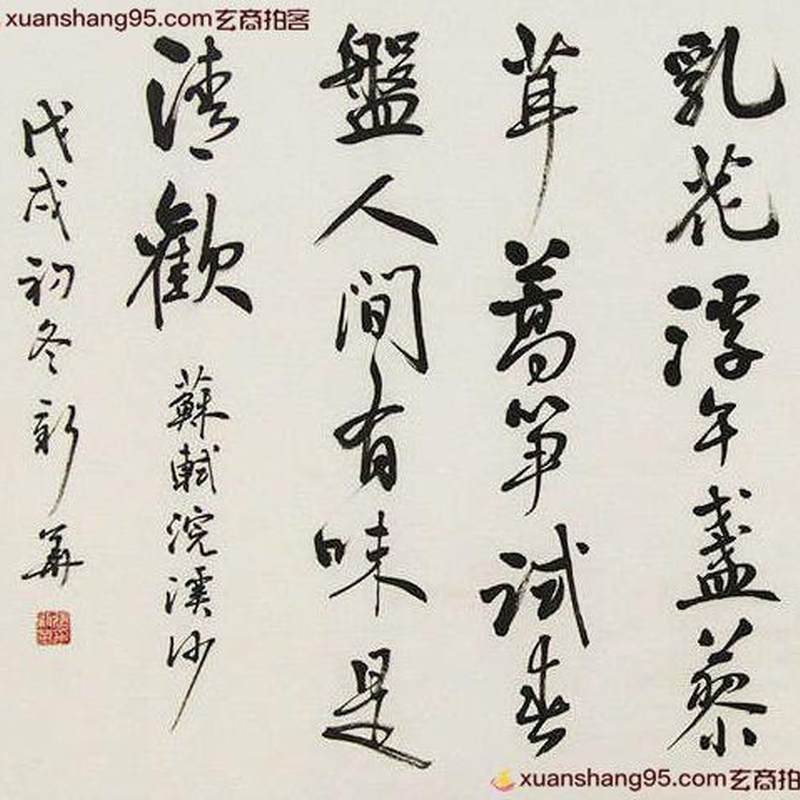 xuanshang95.com玄商拍客
乳花浮午盞蓼
茸蒿笋試春
盤人間有味是
清歡
蘇軾浣溪沙
戊戌初冬新華
xuanshang95.com玄商拍